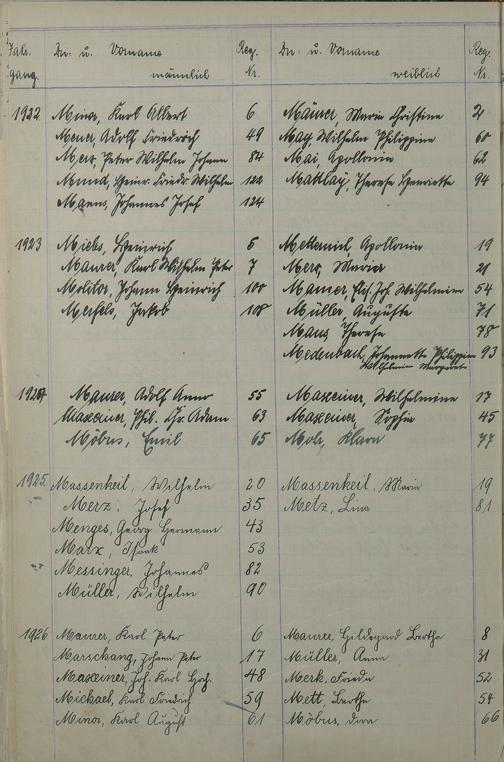 Jahr- Zu- u. Vorname Reg. Zu- u. Vorname Reg.
gang. männlich Nr. weiblich Nr.
1922 Minor, Karl Albert 6 Mäurer, Maria Christine 2
Meuer, Adolf Friedrich 49 May, Wilhelm Philippine 60
Merz, Peter Wilhelm Johann 84 Mai, Apollonia 62
Mund, Heinr. Friedr. Wilhelm 122 Maklay, Therese Henriette 94
Johannes Josef 124
1923 Heinrich 5 Metternich, Apollonia 19
Maurer, Karl Wilhelm Peter 7 Merz, Maria 21
Molitor, Johann Heinrich 100 Joh. Wilhelmine 54
Merfels, Jakob 108 Müller, Auguste 71
Maus, Therese 78
Medenbach, Johannette Philippin 93
Wilhelmine Margarete
1924 Maurer, Adolf Anno 55 Maxeiner, Wilhelmine 17
Maxeiner, Phil. Chr. Adam 63 Maxeiner, Sophie 45
Möbus, Emil 65 Klara 77
1925 Massenkeil, Wilhelm 20 Massenkeil, Maria 19
Merz, Josef 35 Metz, Lina 81
Menges, Georg Hermann 43
Marx, Isaak 53
Messinger, Johannes 82
Müller, Wilhelm 90
1926 Maurer, Karl Peter 6 Maurer, Hildegard Bertha 8
Marschang, Johann Peter 17 Müller, Anna 31
Maxeiner, Joh. Karl Hch. 48 Merk, Frieda 52
Michael, Karl Friedrich 59 Mett, Bertha 54
Minor, Karl August 61 Möbus, 66